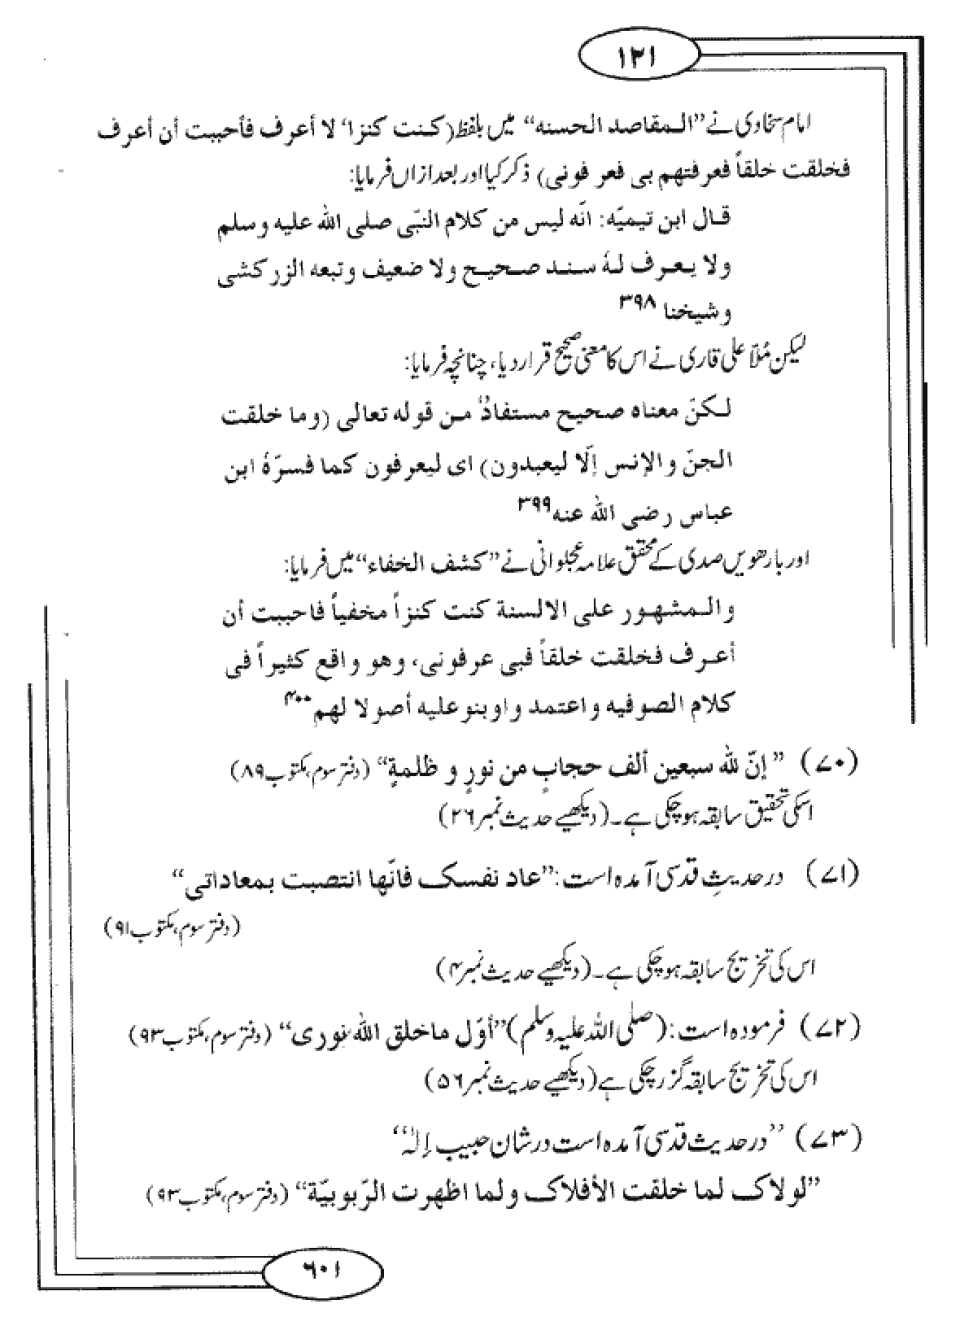 ۱۲۱
امام سخاوی نے ”المقاصد الحسنه“ میں بلفظ (کنت کنزا' لا أعرف فأحببت أن أعرف
فخلقت خلقاً فعرفتهم بی فعر فونی) ذکر کیا اور بعد ازاں فرمایا:
قال ابن تیمیّه: انّه لیس من کلام النّبی صلی الله علیه وسلم
ولا یعرف لهٗ سند صحیح ولا ضعیف وتبعه الزرکشی
وشیخنا ۳۹۸
لیکن مُلّا علی قاری نے اس کا معنی صحیح قرار دیا، چنانچہ فرمایا:
لکنّ معناه صحیح مستفادٌ من قوله تعالی (وما خلقت
الجنّ والإنس إلّا لیعبدون) ای لیعرفون کما فسرّهٗ ابن
عباس رضی الله عنه ۳۹۹
اور بارھویں صدی کے محقق علامہ عجلوانی نے ”کشف الخفاء“ میں فرمایا:
والمشهور علی الالسنة کنت کنزاً مخفیاً فاحببت أن
أعرف فخلقت خلقاً فبی عرفونی، وهو واقع کثیراً فی
کلام الصوفیه واعتمد واوبنو علیه أصولا لهم ۴۰۰
(۷۰) ”إنّ لله سبعین ألف حجابٍ من نورٍ و ظلمةٍ“ (دفتر سوم، مکتوب ۸۹)
اسکی تحقیق سابقہ ہو چکی ہے۔ (دیکھیے حدیث نمبر ۲۶)
(۷۱) در حدیثِ قدسی آمده است: ”عاد نفسک فانّها انتصبت بمعاداتی“
(دفتر سوم، مکتوب ۹۱)
اس کی تخریج سابقہ ہو چکی ہے۔ (دیکھیے حدیث نمبر ۴)
(۷۲) فرموده است: (صلی اللہ علیہ وسلم) ”أوّل ما خلق الله نوری“ (دفتر سوم، مکتوب ۹۳)
اس کی تخریج سابقہ گزر چکی ہے (دیکھیے حدیث نمبر ۵۶)
(۷۳) ”در حدیث قدسی آمده است در شان حبیب إلٰہ“
”لولاک لما خلقت الأفلاک ولما اظهرت الرّبوبیّة“ (دفتر سوم، مکتوب ۹۳)
۶۰۱